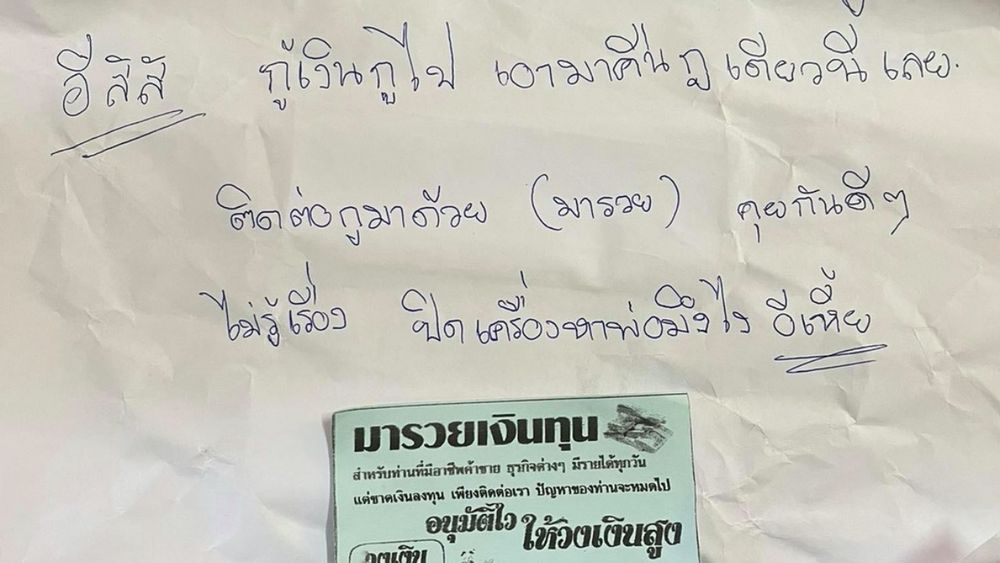 อีสิสั กู้เงินกูไป เอามาคืนกู เดียวนี้ เลย.
ติดต่อกูมาด้วย (มารวย) คุยกันดีๆ
ไม่รู้เรื่อง ปิดเครื่องหาพ่อมึงไง อีเหี้ย
มารวยเงินทุน
สำหรับท่านที่มีอาชีพค้าขาย ธุรกิจต่างๆ มีรายได้ทุกวัน
แต่ขาดเงินลงทุน เพียงติดต่อเรา ปัญหาของท่านจะหมดไป
อนุมัติไว ให้วงเงินสูง
วงเงิน